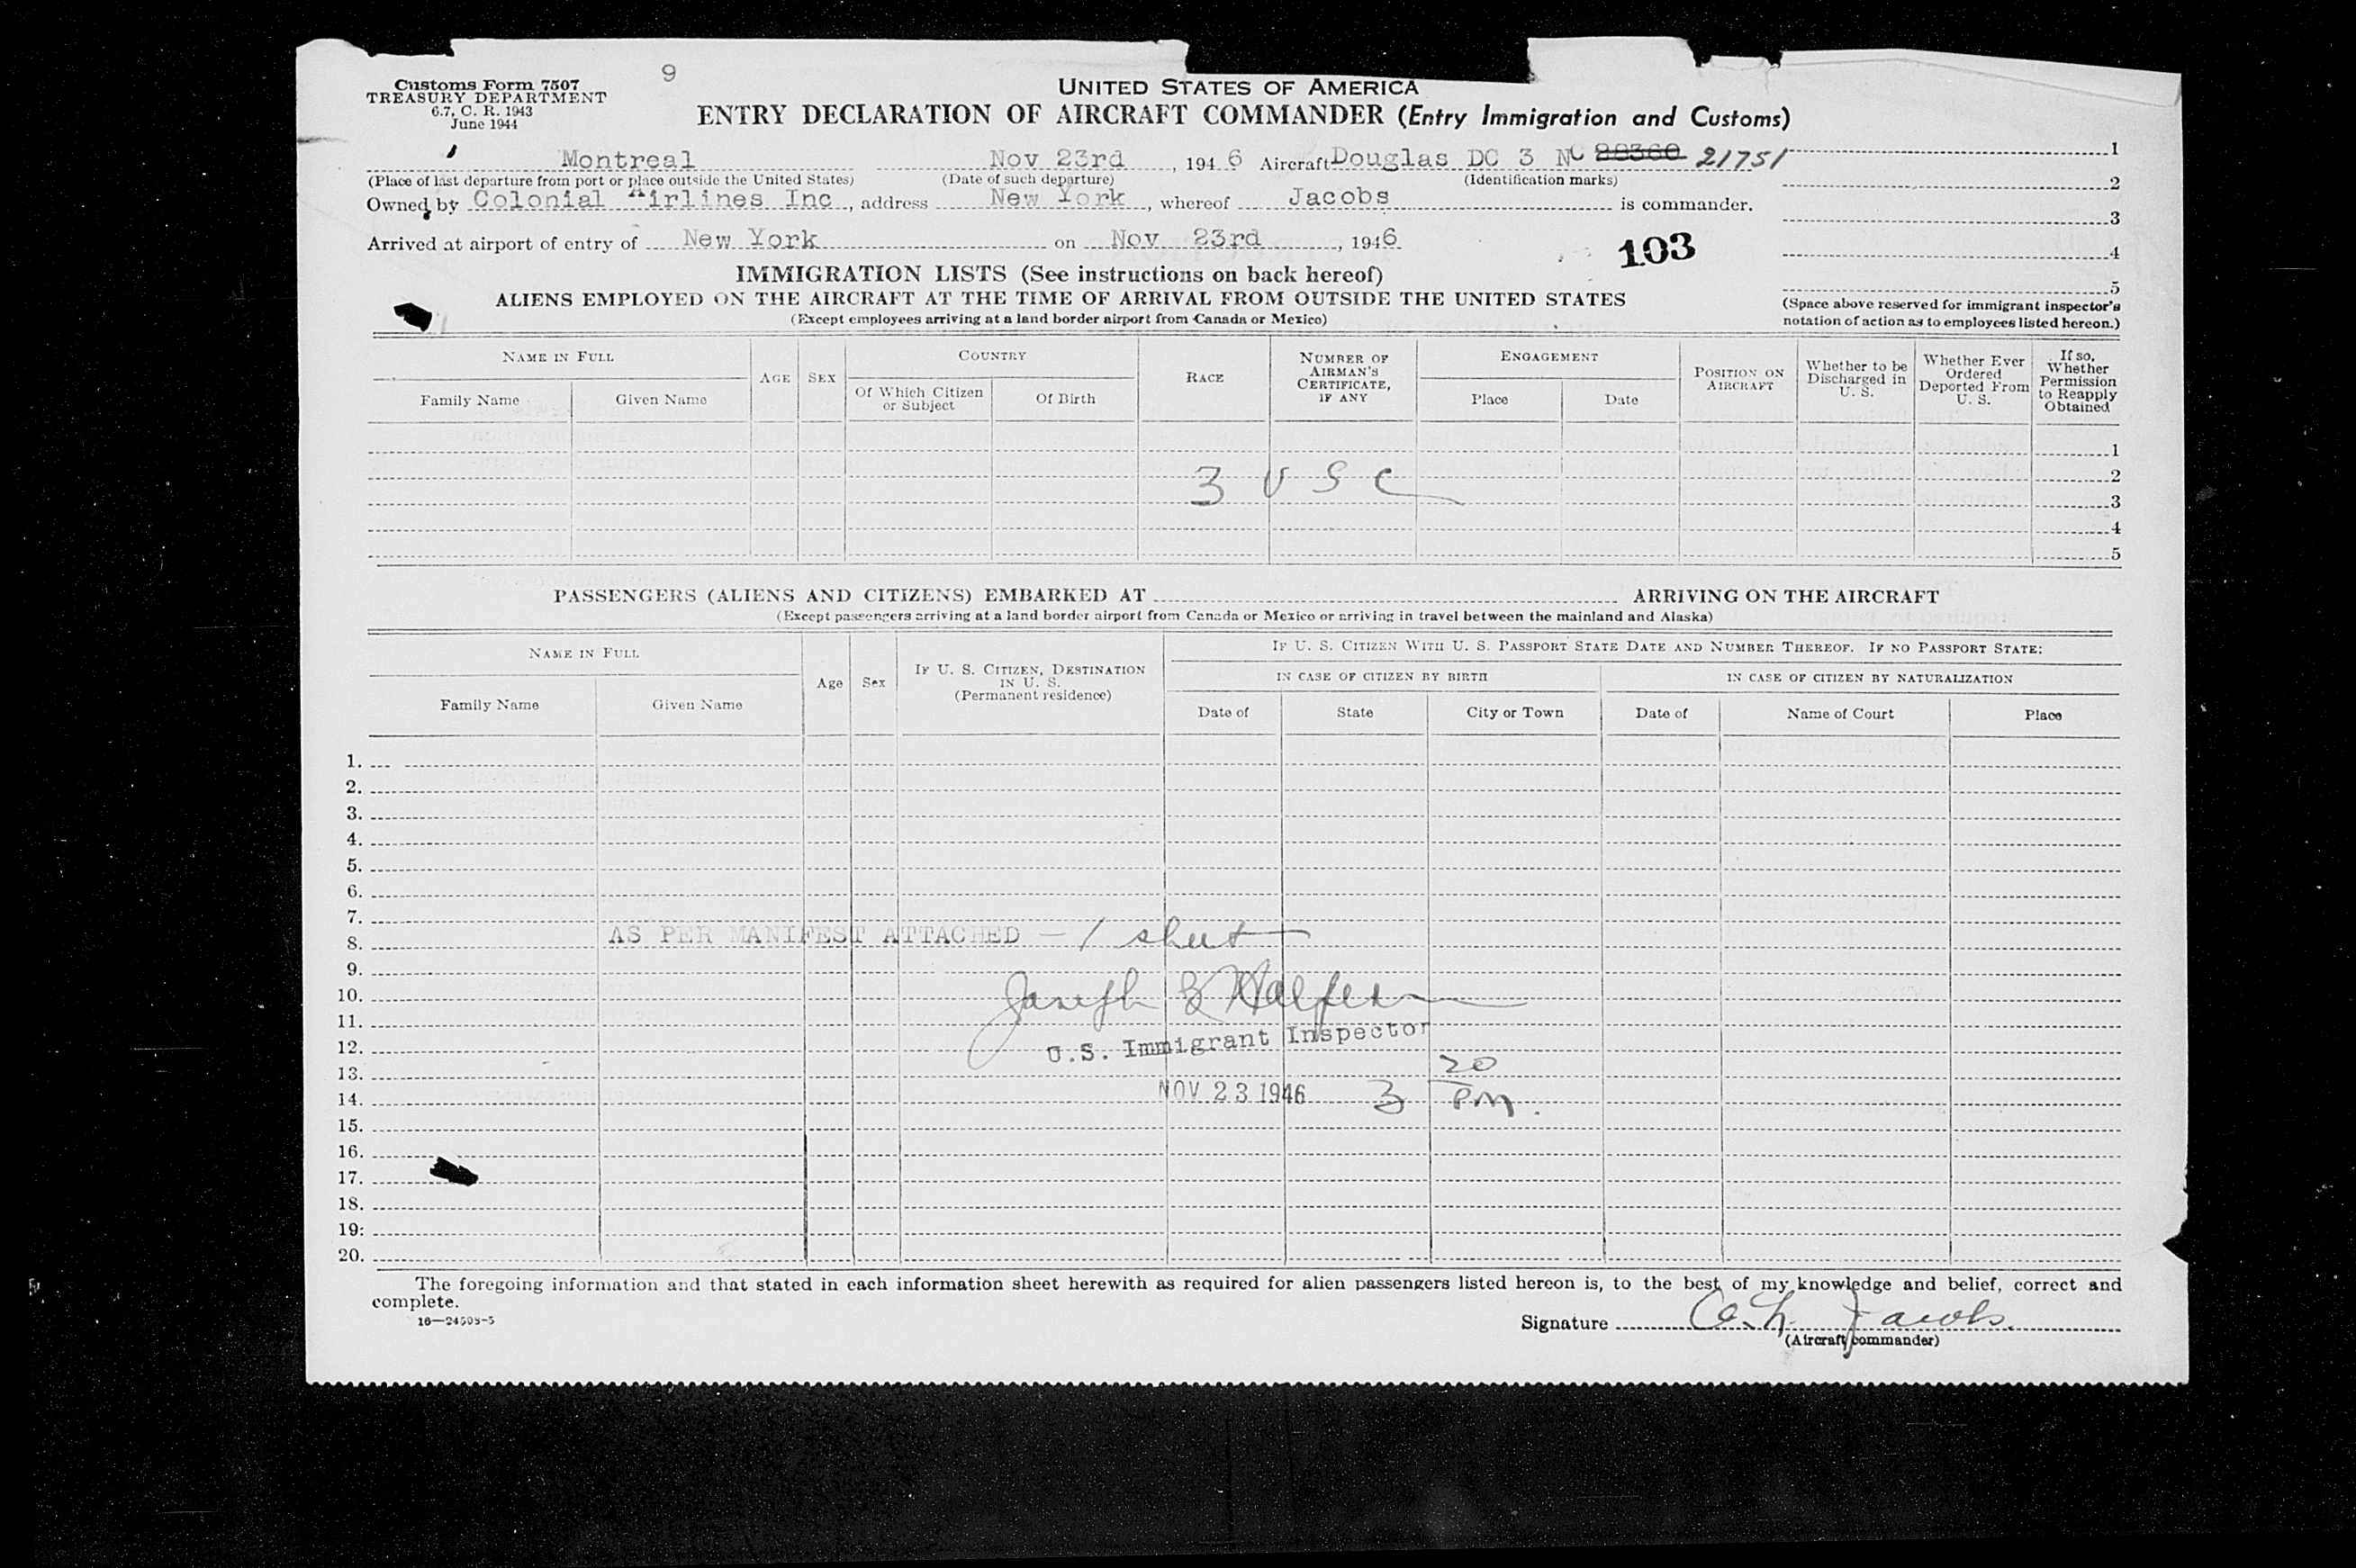 9
Customs Form 7507
TREASURY DEPARTMENT
6.7, C. R. 1943
June 1944
UNITED STATES OF AMERICA
ENTRY DECLARATION OF AIRCRAFT COMMANDER (Entry Immigration and Customs)
Montreal Nov 23rd, 1946 Aircraft Douglas DC 3 NC 88360 21751
(Place of last departure from port or place outside the United States) (Date of such departure) (Identification marks)
Owned by Colonial Airlines Inc, address New York, whereof Jacobs is commander.
Arrived at airport of entry of New York on Nov 23rd, 1946
103
1
2
3
4
5
(Space above reserved for immigrant inspector's
notation of action as to employees listed hereon.)
IMMIGRATION LISTS (See instructions on back hereof)
ALIENS EMPLOYED ON THE AIRCRAFT AT THE TIME OF ARRIVAL FROM OUTSIDE THE UNITED STATES
(Except employees arriving at a land border airport from Canada or Mexico)
NAME IN FULL
Family Name
Given Name
AGE
SEX
COUNTRY
Of Which Citizen
or Subject
Of Birth
RACE
NUMBER OF
AIRMAN'S
CERTIFICATE,
IF ANY
ENGAGEMENT
Place
Date
POSITION ON
AIRCRAFT
Whether to be
Discharged in
U. S.
Whether Ever
Ordered
Deported From
U. S.
If so,
Whether
Permission
to Reapply
Obtained
1
2
3 U S C
3
4
5
PASSENGERS (ALIENS AND CITIZENS) EMBARKED AT ARRIVING ON THE AIRCRAFT
(Except passengers arriving at a land border airport from Canada or Mexico or arriving in travel between the mainland and Alaska)
NAME IN FULL
Family Name
Given Name
Age
Sex
IF U. S. CITIZEN, DESTINATION
IN U. S.
(Permanent residence)
IF U. S. CITIZEN WITH U. S. PASSPORT STATE DATE AND NUMBER THEREOF. IF NO PASSPORT STATE:
IN CASE OF CITIZEN BY BIRTH
Date of
State
City or Town
IN CASE OF CITIZEN BY NATURALIZATION
Date of
Name of Court
Place
1.
2.
3.
4.
5.
6.
7.
8. AS PER MANIFEST ATTACHED — 1 sheet
9.
10. Joseph Halfern
11.
12. U.S. Immigrant Inspector
13.
14. NOV 23 1946 3 20 PM.
15.
16.
17.
18.
19.
20.
The foregoing information and that stated in each information sheet herewith as required for alien passengers listed hereon is, to the best of my knowledge and belief, correct and
complete.
16—24508-5
Signature Jacobs
(Aircraft commander)